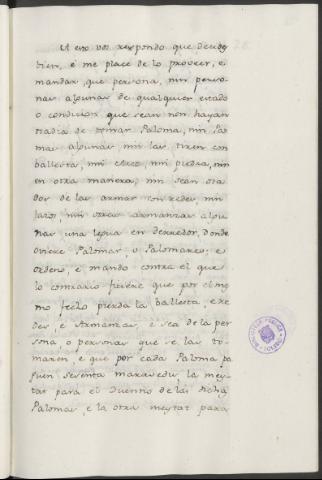 A esto vos respondo que decides
bien, e me place de lo proveer, e
mandar, que persona, nin perso-
nas algunas de qualquier estado
o condicion que sean non hayan
osadia de tomar Paloma, nin Palo-
mas algunas nin las tiren con
ballesta, nin arco, nin piedra, nin
en otra manera, nin sean osa-
dos de las armar con redes, nin
lazos, nin otras armanzas algu-
nas una legua en derredor, donde
oviere Palomar, o Palomares; e
ordeno, e mando contra el que
lo contrario ficiere que por el mes-
mo fecho pierda la ballesta, e re-
des, e Armanzas, e sea de la per-
sona, o personas que se las to-
maren, e que por cada Paloma pa-
guen sesenta maravedis la mey-
tat para el Dueño de las dichas
Palomas, e la otra meytat para